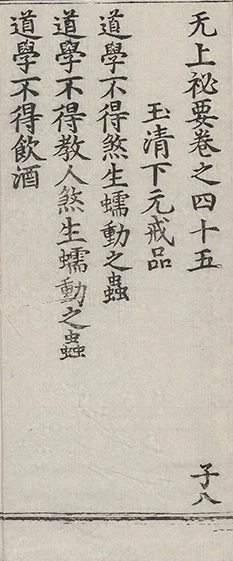 无上祕要卷之四十五
子八
玉清下元戒品
道學不得煞生蠕動之蟲
道學不得教人煞生蠕動之蟲
道學不得飲酒